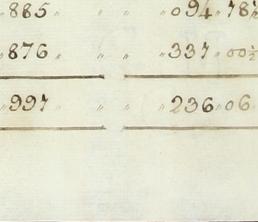 "885 " " " "094"78½
"876 " " " "337"00½
"997 " " " "236"06"